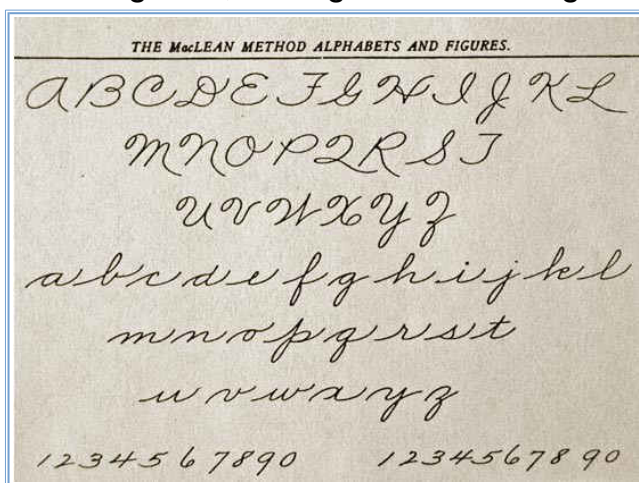 THE MacLEAN METHOD ALPHABETS AND FIGURES.
A B C D E F G H I J K L
M N O P Q R S T
U V W X Y Z
a b c d e f g h i j k l
m n o p q r s t
u v w x y z
1 2 3 4 5 6 7 8 9 0 1 2 3 4 5 6 7 8 9 0